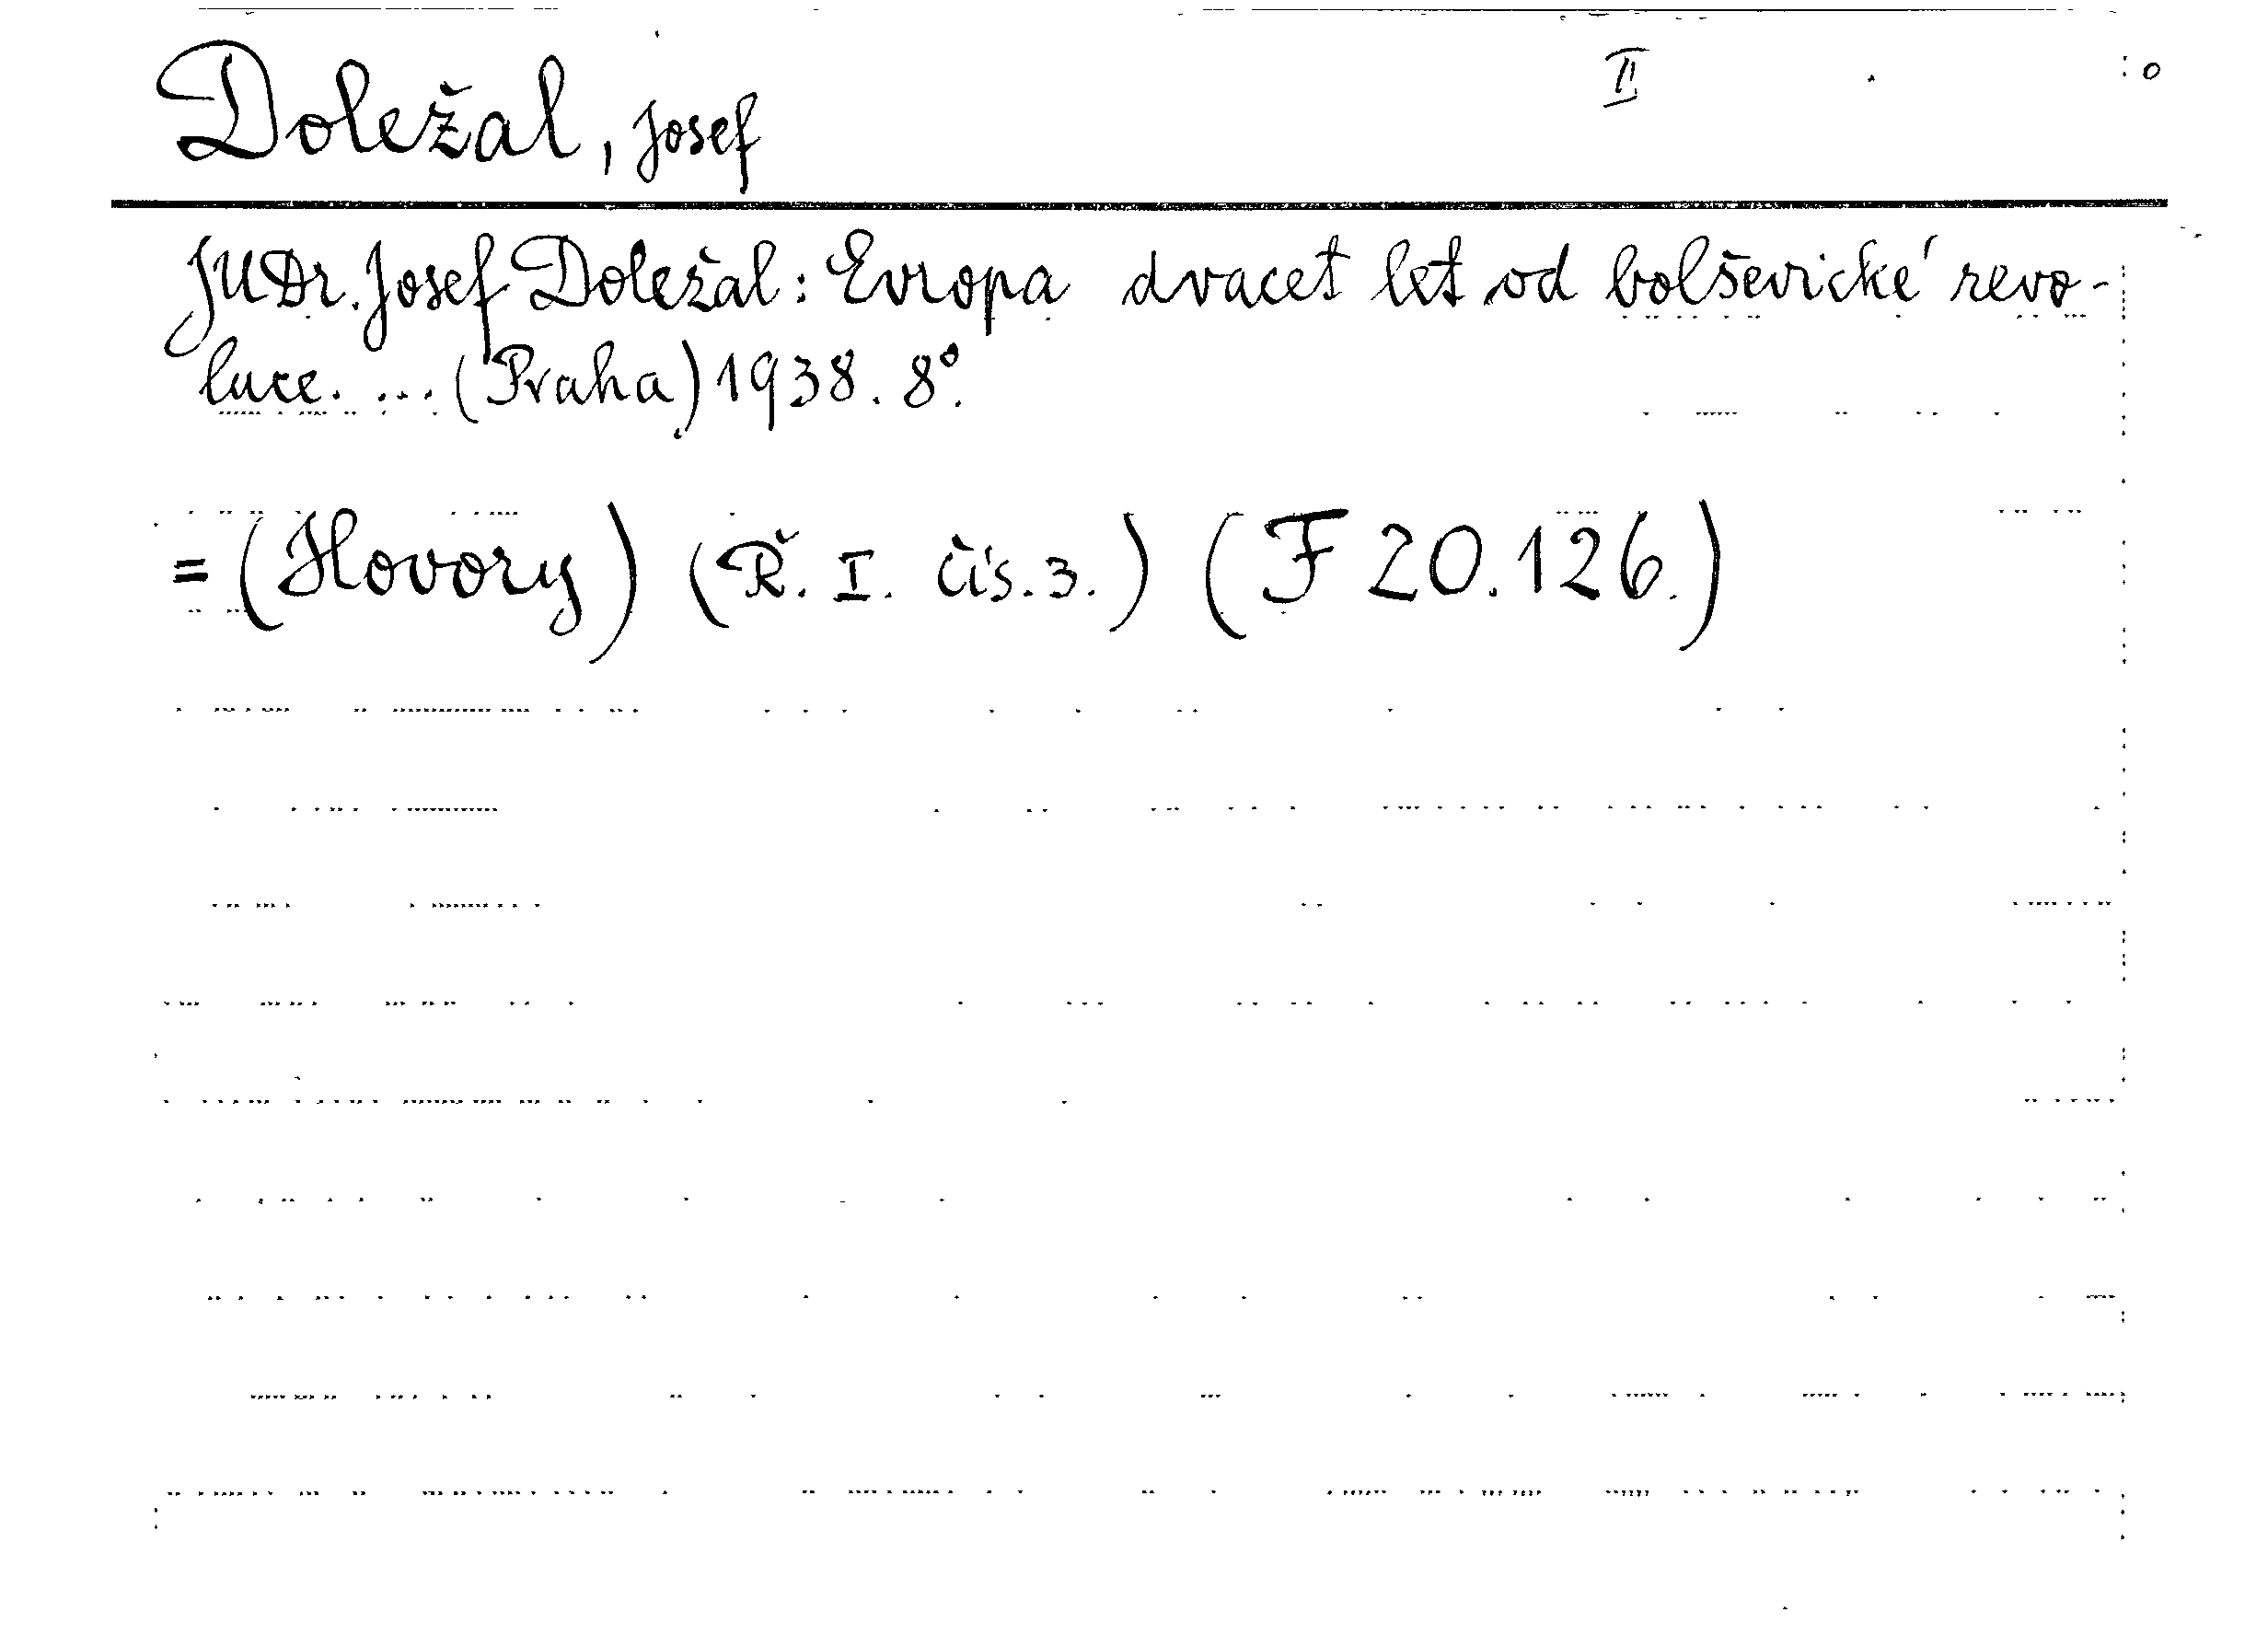 Doležal, Josef II
JUDr. Josef Doležal: Evropa dvacet let od bolševické revo-
luce. ... (Praha) 1938. 8°.
= (Hovory) (Ř. I. čís. 3.) (F 20.126.)